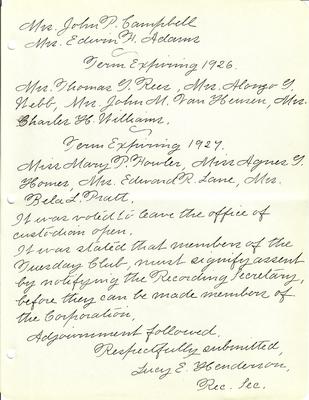 Mrs. John P. Campbell
Mrs. Edwin H. Adams
Term Expiring 1926.
Mrs. Thomas G. Rees, Mrs. Alonzo G.
Webb, Mrs. John M. Van Heusen, Mrs.
Charles H. Williams.
Term Expiring 1927.
Miss Mary P. Fowler, Miss Agnes G.
Homes, Mrs. Edward R. Lane, Mrs.
Bela L. Pratt.
It was voted to leave the office of
custodian open.
It was stated that members of the
Tuesday Club, must signify assent
by notifying the Recording Secretary,
before they can be made members of
the Corporation.
Adjournment followed.
Respectfully submitted,
Lucy E. Henderson,
Rec. Sec.